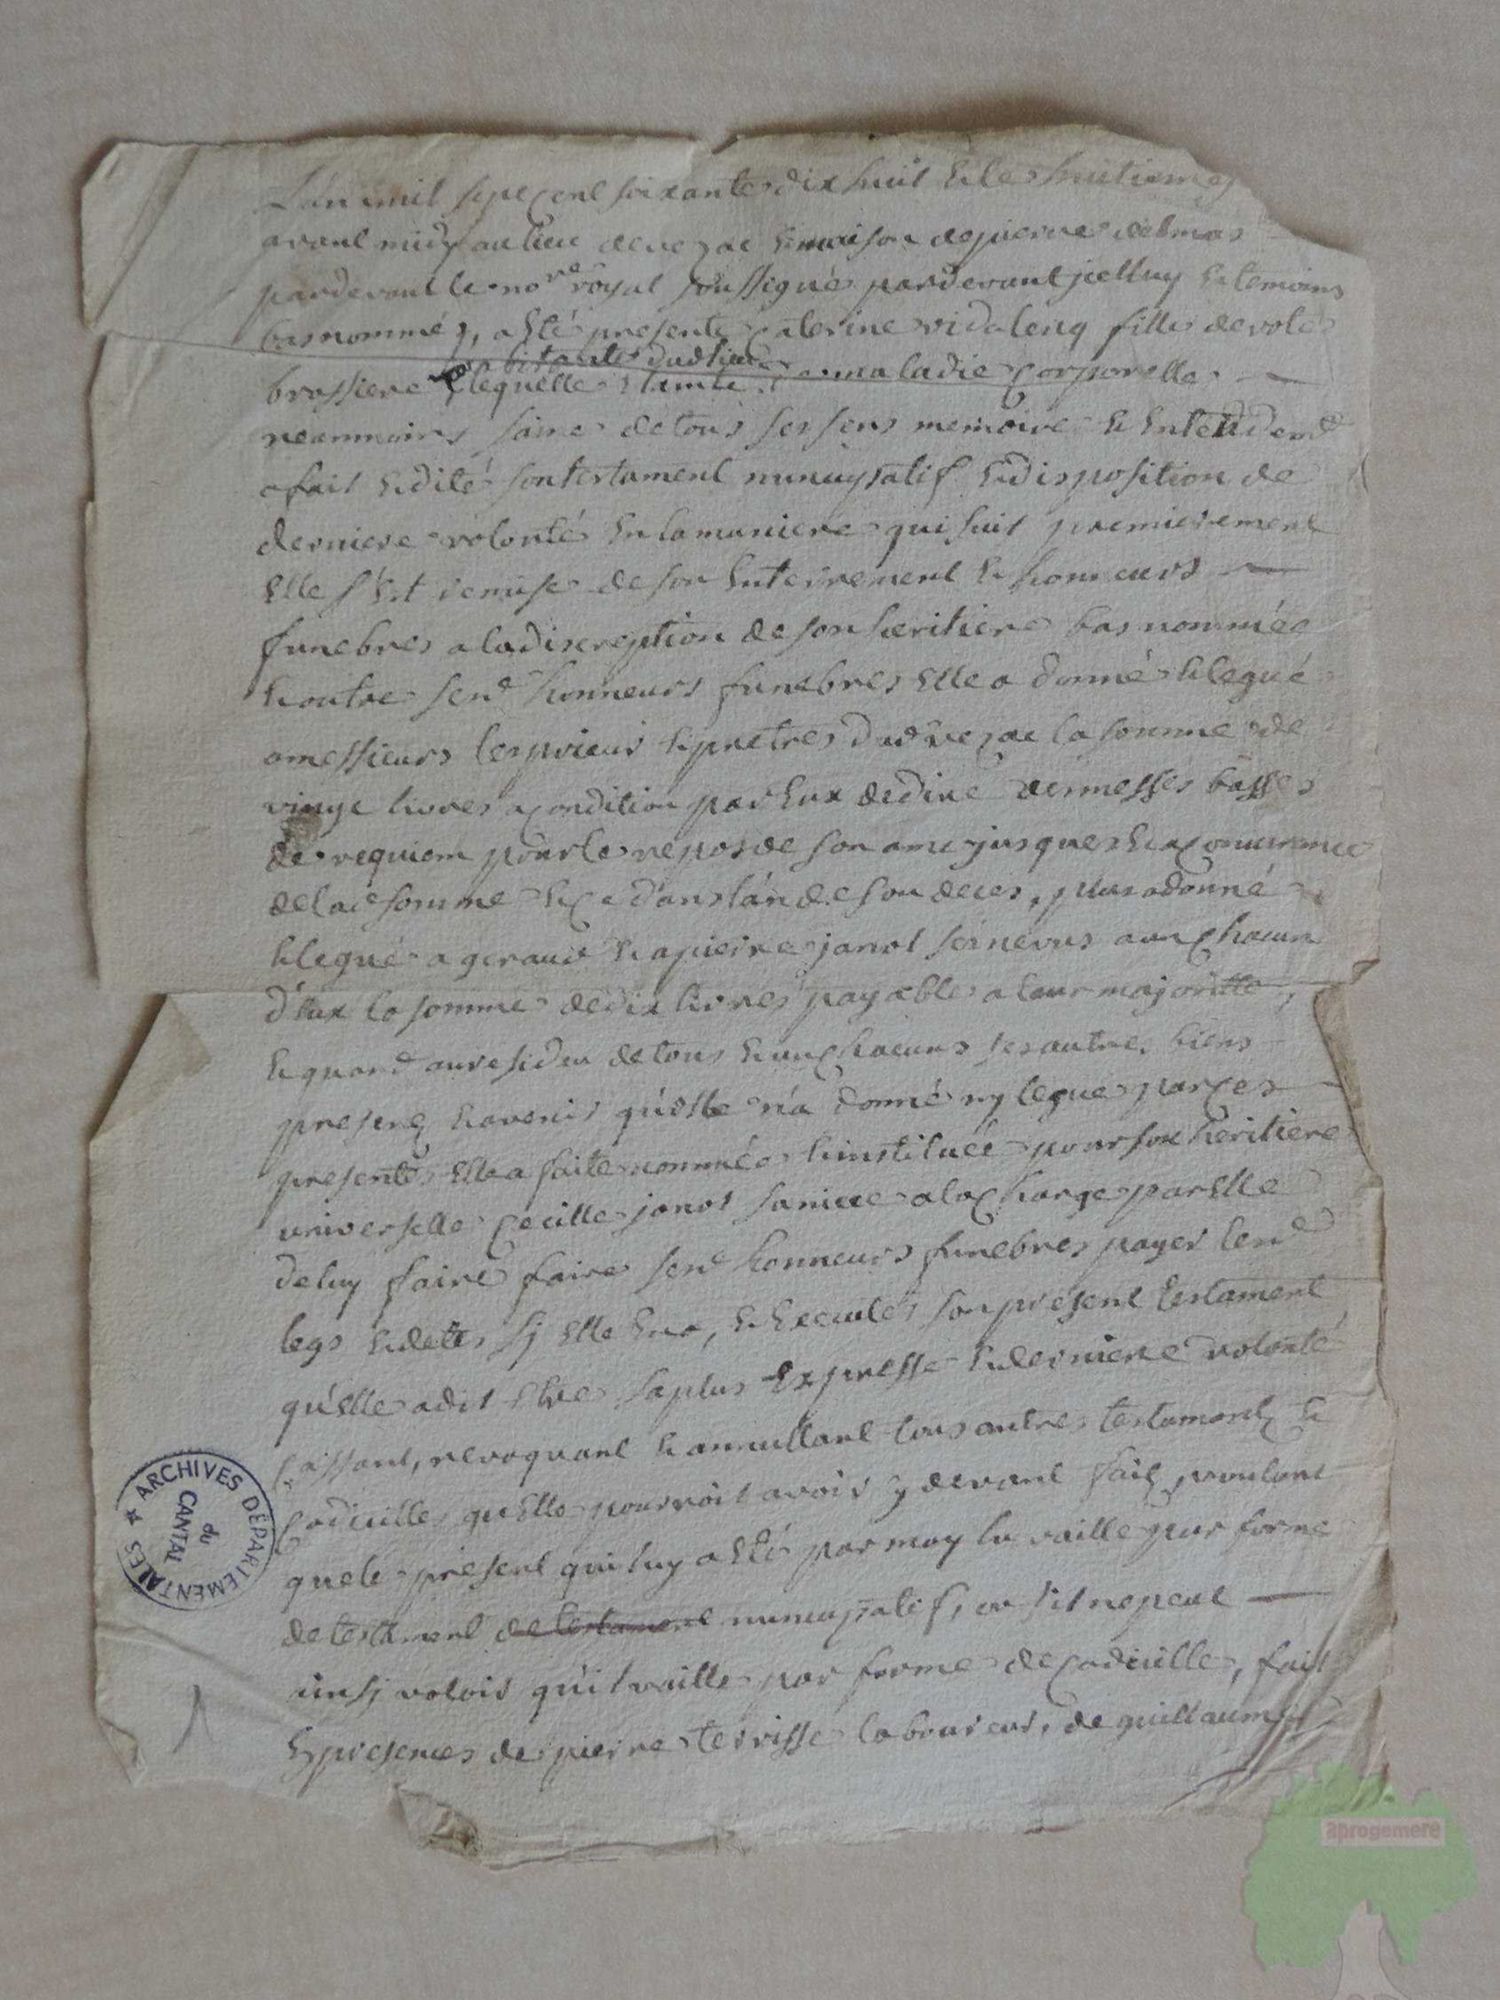 L'an mil sept cent soixante dix huit & le huitieme
avant midy au lieu de vezac & maison de pierre delmas
pardevant le no.re royal soussigné pardevant jcelluy & temoins
bas nommés, a esté presente caterine vidalenq fille devole
habitante dudt lieu
brassiere laquelle maladie corporelle
neanmoins saine de tous ses sens memoire & entendemt
a fait & dité son testament nuncupatif & disposition de
derniere volonté en la maniere qui suit premierement
elle s'est remise de son enterrement & honneurs
funebres a la discreption de son heritiere bas nommée
& outre send honneurs funebres elle a donné & legué
a messieurs les prieur & pretres dud vezac la somme de
vingt livres a condition par eux de dire des messes basses
de requiem pour le repos de son ame jusques & a concurrence
de lade somme & ce dans l'an de son deces, plus a donné
& legué a geraud & a pierre janot ses nevus a un chacun
d'eux la somme de dix livres payables a leur majoritte,
& quand au residu de tous & un chacuns ses autres biens
presens & avenir qu'elle n'a donné ny legue par ces
presentes elle a faite nommée & instituée pour son heritiere
universelle cecille janot sa niece a la charge par elle
de luy faire faire send honneurs funebres payer lesd
legs & detes sj elle en a, & executer son présent testament
qu'elle a dit etre sa plus expresse & derniere volonté
cassant, revoquant & annullant tous autres testaments &
codicilles qu'elle pourroit avoir cy devant fait, voulant
que le présent qui luy a esté par moy lu vaille par forme
de testament de testament nuncupatif, ou s'il ne peut
ainsj valoir qu'il vaille par forme de codicille, fait
en presences de pierre terrisse laboureur, de guillaume
ARCHIVES DÉPARTEMENTALES
du
CANTAL
aprogemere